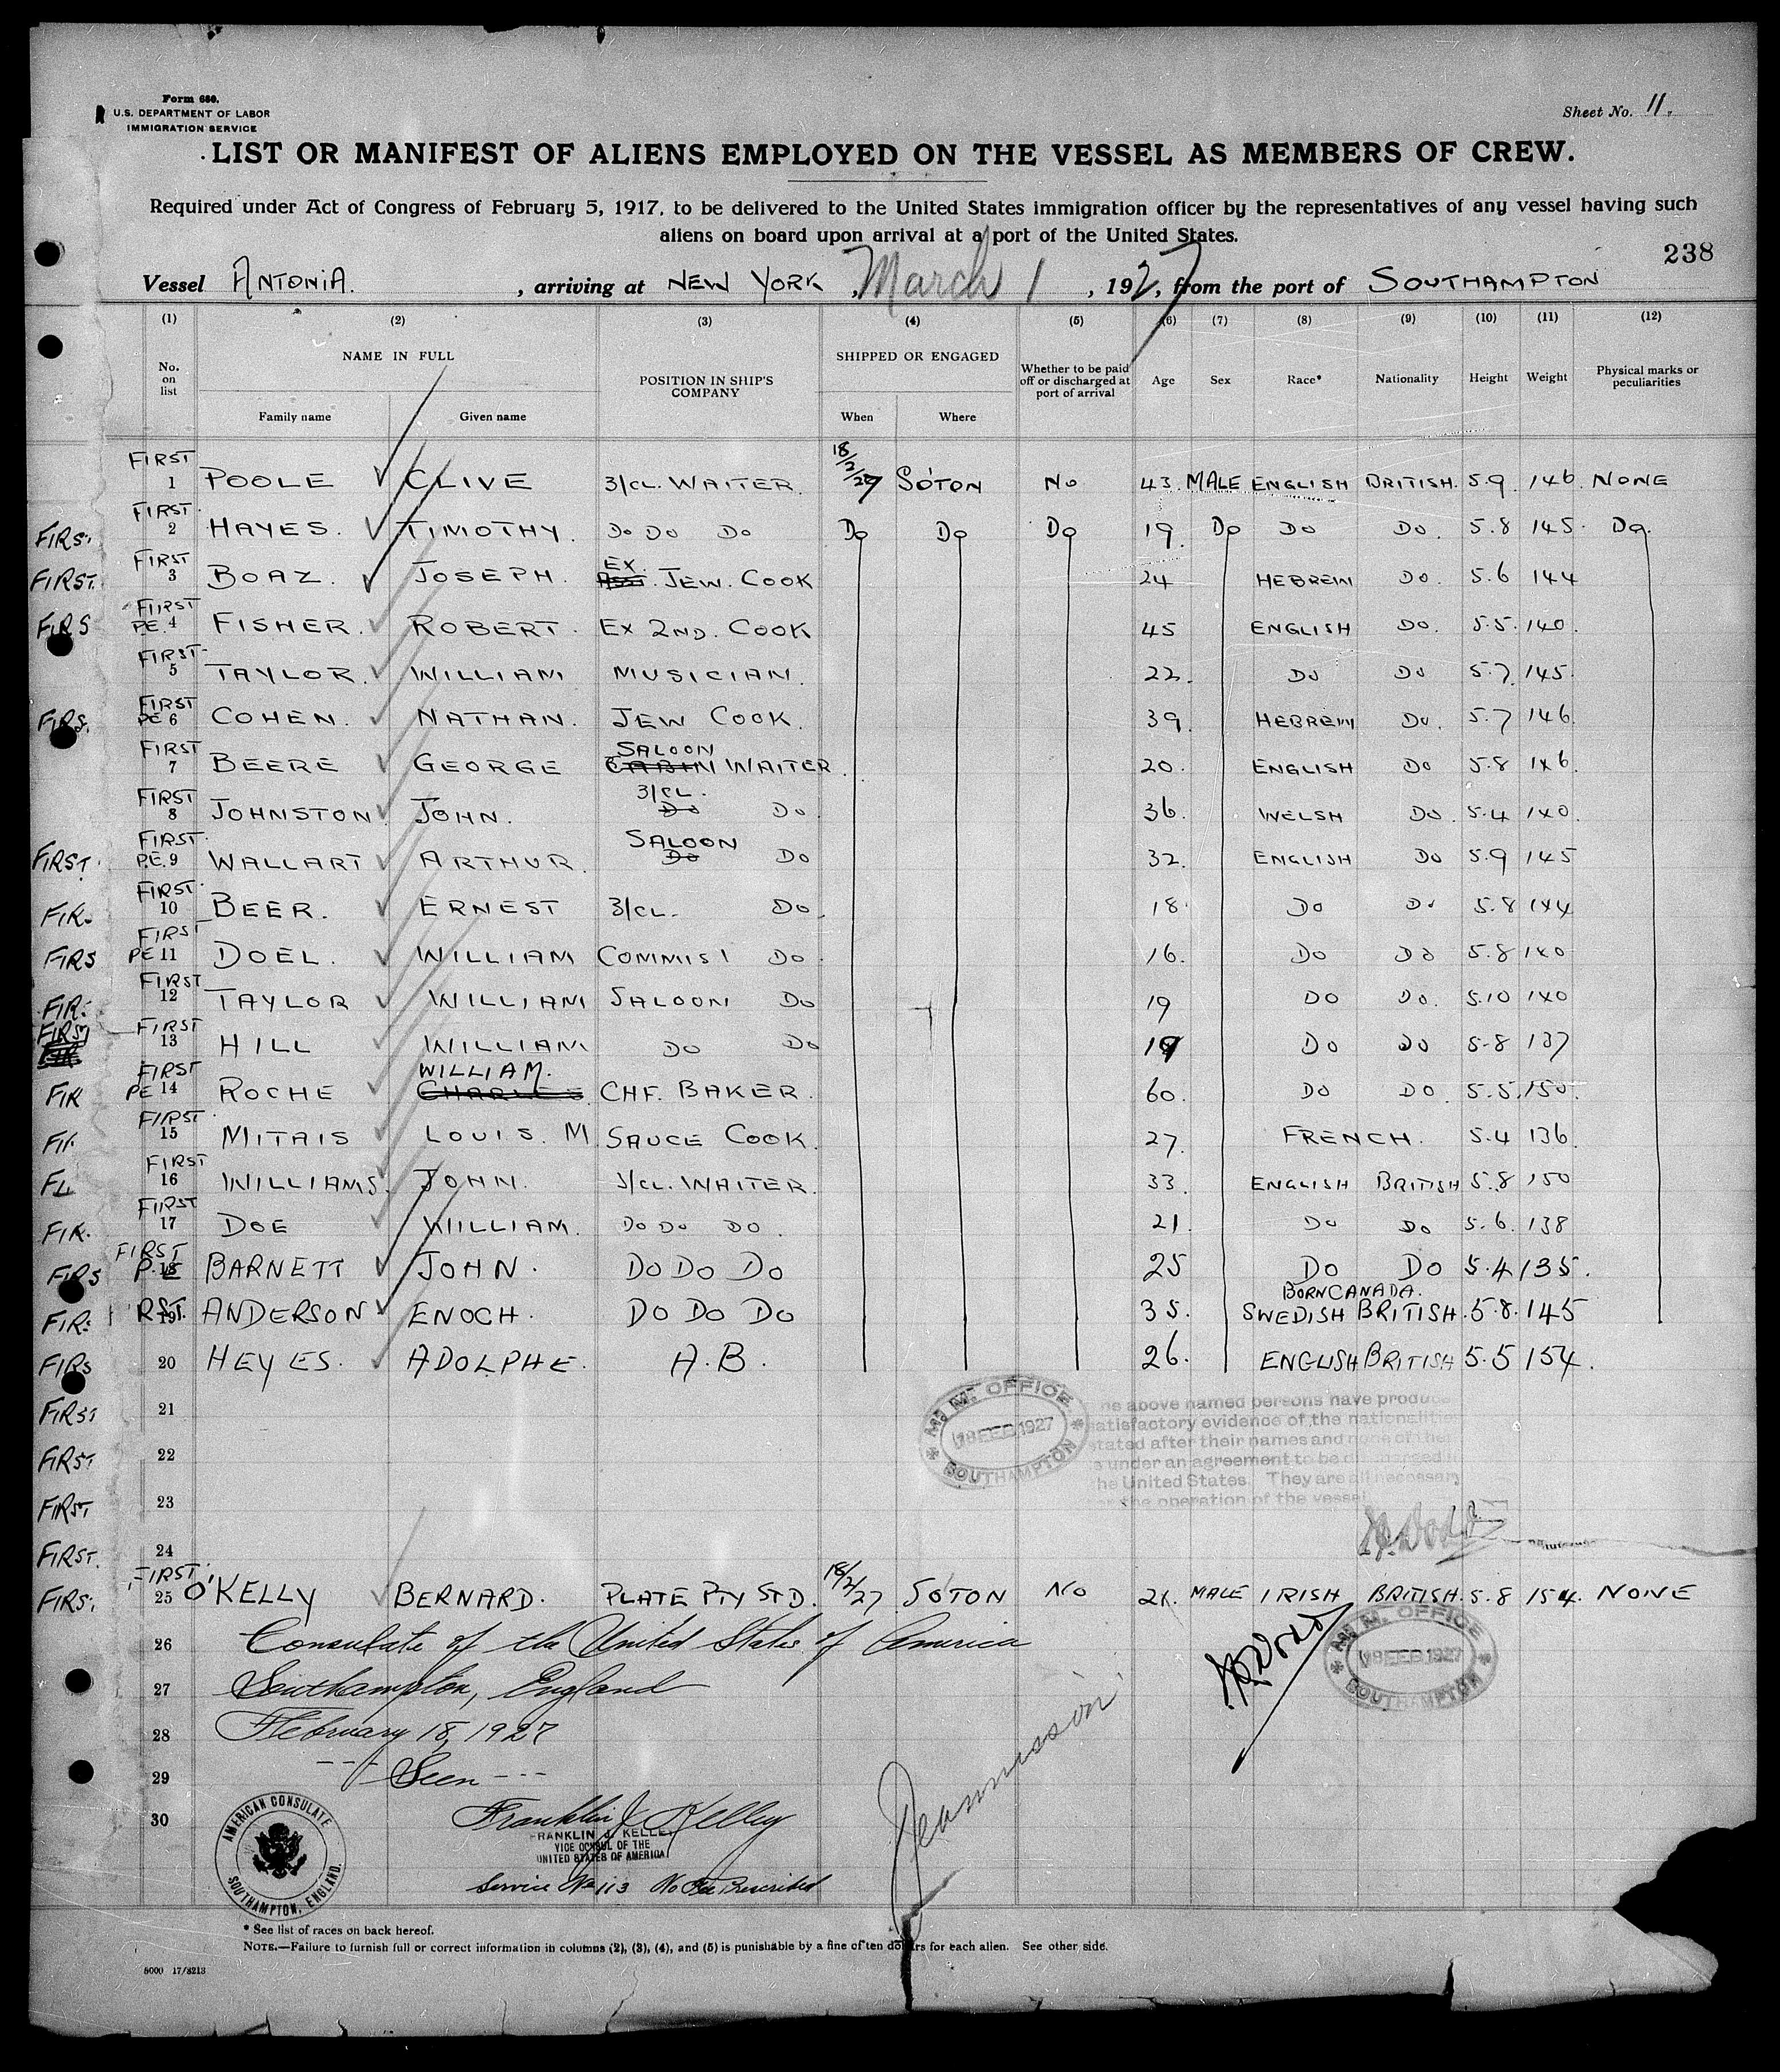 Form 680.
U.S. DEPARTMENT OF LABOR
IMMIGRATION SERVICE
Sheet No. 11.
LIST OR MANIFEST OF ALIENS EMPLOYED ON THE VESSEL AS MEMBERS OF CREW.
Required under Act of Congress of February 5, 1917, to be delivered to the United States immigration officer by the representatives of any vessel having such
aliens on board upon arrival at a port of the United States.
238
Vessel ANTONIA. , arriving at NEW YORK , March 1 , 1927, from the port of SOUTHAMPTON
(1) (2) (3) (4) (5) (6) (7) (8) (9) (10) (11) (12)
No. on list NAME IN FULL POSITION IN SHIP'S COMPANY SHIPPED OR ENGAGED Whether to be paid off or discharged at port of arrival Age Sex Race* Nationality Height Weight Physical marks or peculiarities
Family name Given name When Where
FIRST 1 POOLE CLIVE 3/CL. WAITER. 18/2/27 SO'TON NO 43. MALE ENGLISH BRITISH. 5.9. 146. NONE
FIRS. FIRST. 2 HAYES. TIMOTHY. DO DO DO DO DO DO 19. DO DO DO. 5.8 145. DO.
FIRST. FIRST 3 BOAZ. JOSEPH. EX. ASST. JEW. COOK 24 HEBREW DO. 5.6 144
FIRS FIRST PE. 4 FISHER. ROBERT. EX 2ND. COOK 45 ENGLISH DO. 5.5. 140.
FIRST 5 TAYLOR. WILLIAM MUSICIAN. 22. DO DO 5.7. 145.
FIRS. FIRST PE 6 COHEN. NATHAN. JEW COOK. 39. HEBREW DO. 5.7 146.
FIRST 7 BEERE GEORGE SALOON CABIN WAITER. 20. ENGLISH DO 5.8 146.
FIRST 8 JOHNSTON. JOHN. 3/CL. DO DO. 36. WELSH DO. 5.4 140.
FIRST. FIRST. P.E. 9 WALLART ARTHUR. SALOON DO DO 32. ENGLISH DO 5.9 145
FIR. FIRST. 10 BEER. ERNEST 3/CL. DO. 18. DO DO 5.8 144
FIRS FIRST PE 11 DOEL. WILLIAM COMMIS! DO. 16. DO DO 5.8 140
FIR. FIRST 12 TAYLOR WILLIAM SALOON DO 19 DO DO. 5.10 140
FIRST FIRST 13 HILL WILLIAM DO DO 19 DO DO 5.8 137
FIR FIRST PE 14 ROCHE WILLIAM. CHARLES. CHF. BAKER. 60. DO DO. 5.5. 150.
FIR FIRST. 15 MITAIS LOUIS. M. SAUCE COOK. 27. FRENCH. 5.4 136.
FIRST 16 WILLIAMS. JOHN. 3/CL. WAITER. 33. ENGLISH BRITISH 5.8 150
FIR. FIRST 17 DOE WILLIAM. DO DO DO. 21. DO DO 5.6. 138
FIRS FIRST P.E 18 BARNETT JOHN. DO DO DO 25 DO DO 5.4 135.
BORN CANADA.
FIR. RST. 19 ANDERSON ENOCH. DO DO DO 35. SWEDISH BRITISH. 5.8. 145
FIRS 20 HEYES. ADOLPHE. A.B. 26. ENGLISH BRITISH 5.5 154.
FIRST 21
FIRST 22
FIRST 23
FIRST. 24
M. M. OFFICE
18 FEB 1927
SOUTHAMPTON
he above named persons have produce
atisfactory evidence of the nationalities
stated after their names and none of the
s under an agreement to be discharged
he United States. They are all necessary
the operation of the vessel
FIRS. FIRST. 25 O'KELLY BERNARD. PLATE PTY STD. 18/2/27 SO'TON NO 21. MALE IRISH BRITISH. 5.8 154. NONE
26 Consulate of the United States of America
27 Southampton, England
28 February 18, 1927
29 Seen
30
M. M. OFFICE
18 FEB 1927
SOUTHAMPTON
AMERICAN CONSULATE
SOUTHAMPTON, ENGLAND.
Franklin J Kelley
FRANKLIN J. KELLEY
VICE CONSUL OF THE
UNITED STATES OF AMERICA
Service No 113 No Fee Prescribed
* See list of races on back hereof.
NOTE.—Failure to furnish full or correct information in columns (2), (3), (4), and (5) is punishable by a fine of ten dollars for each alien. See other side.
5000 17/8213